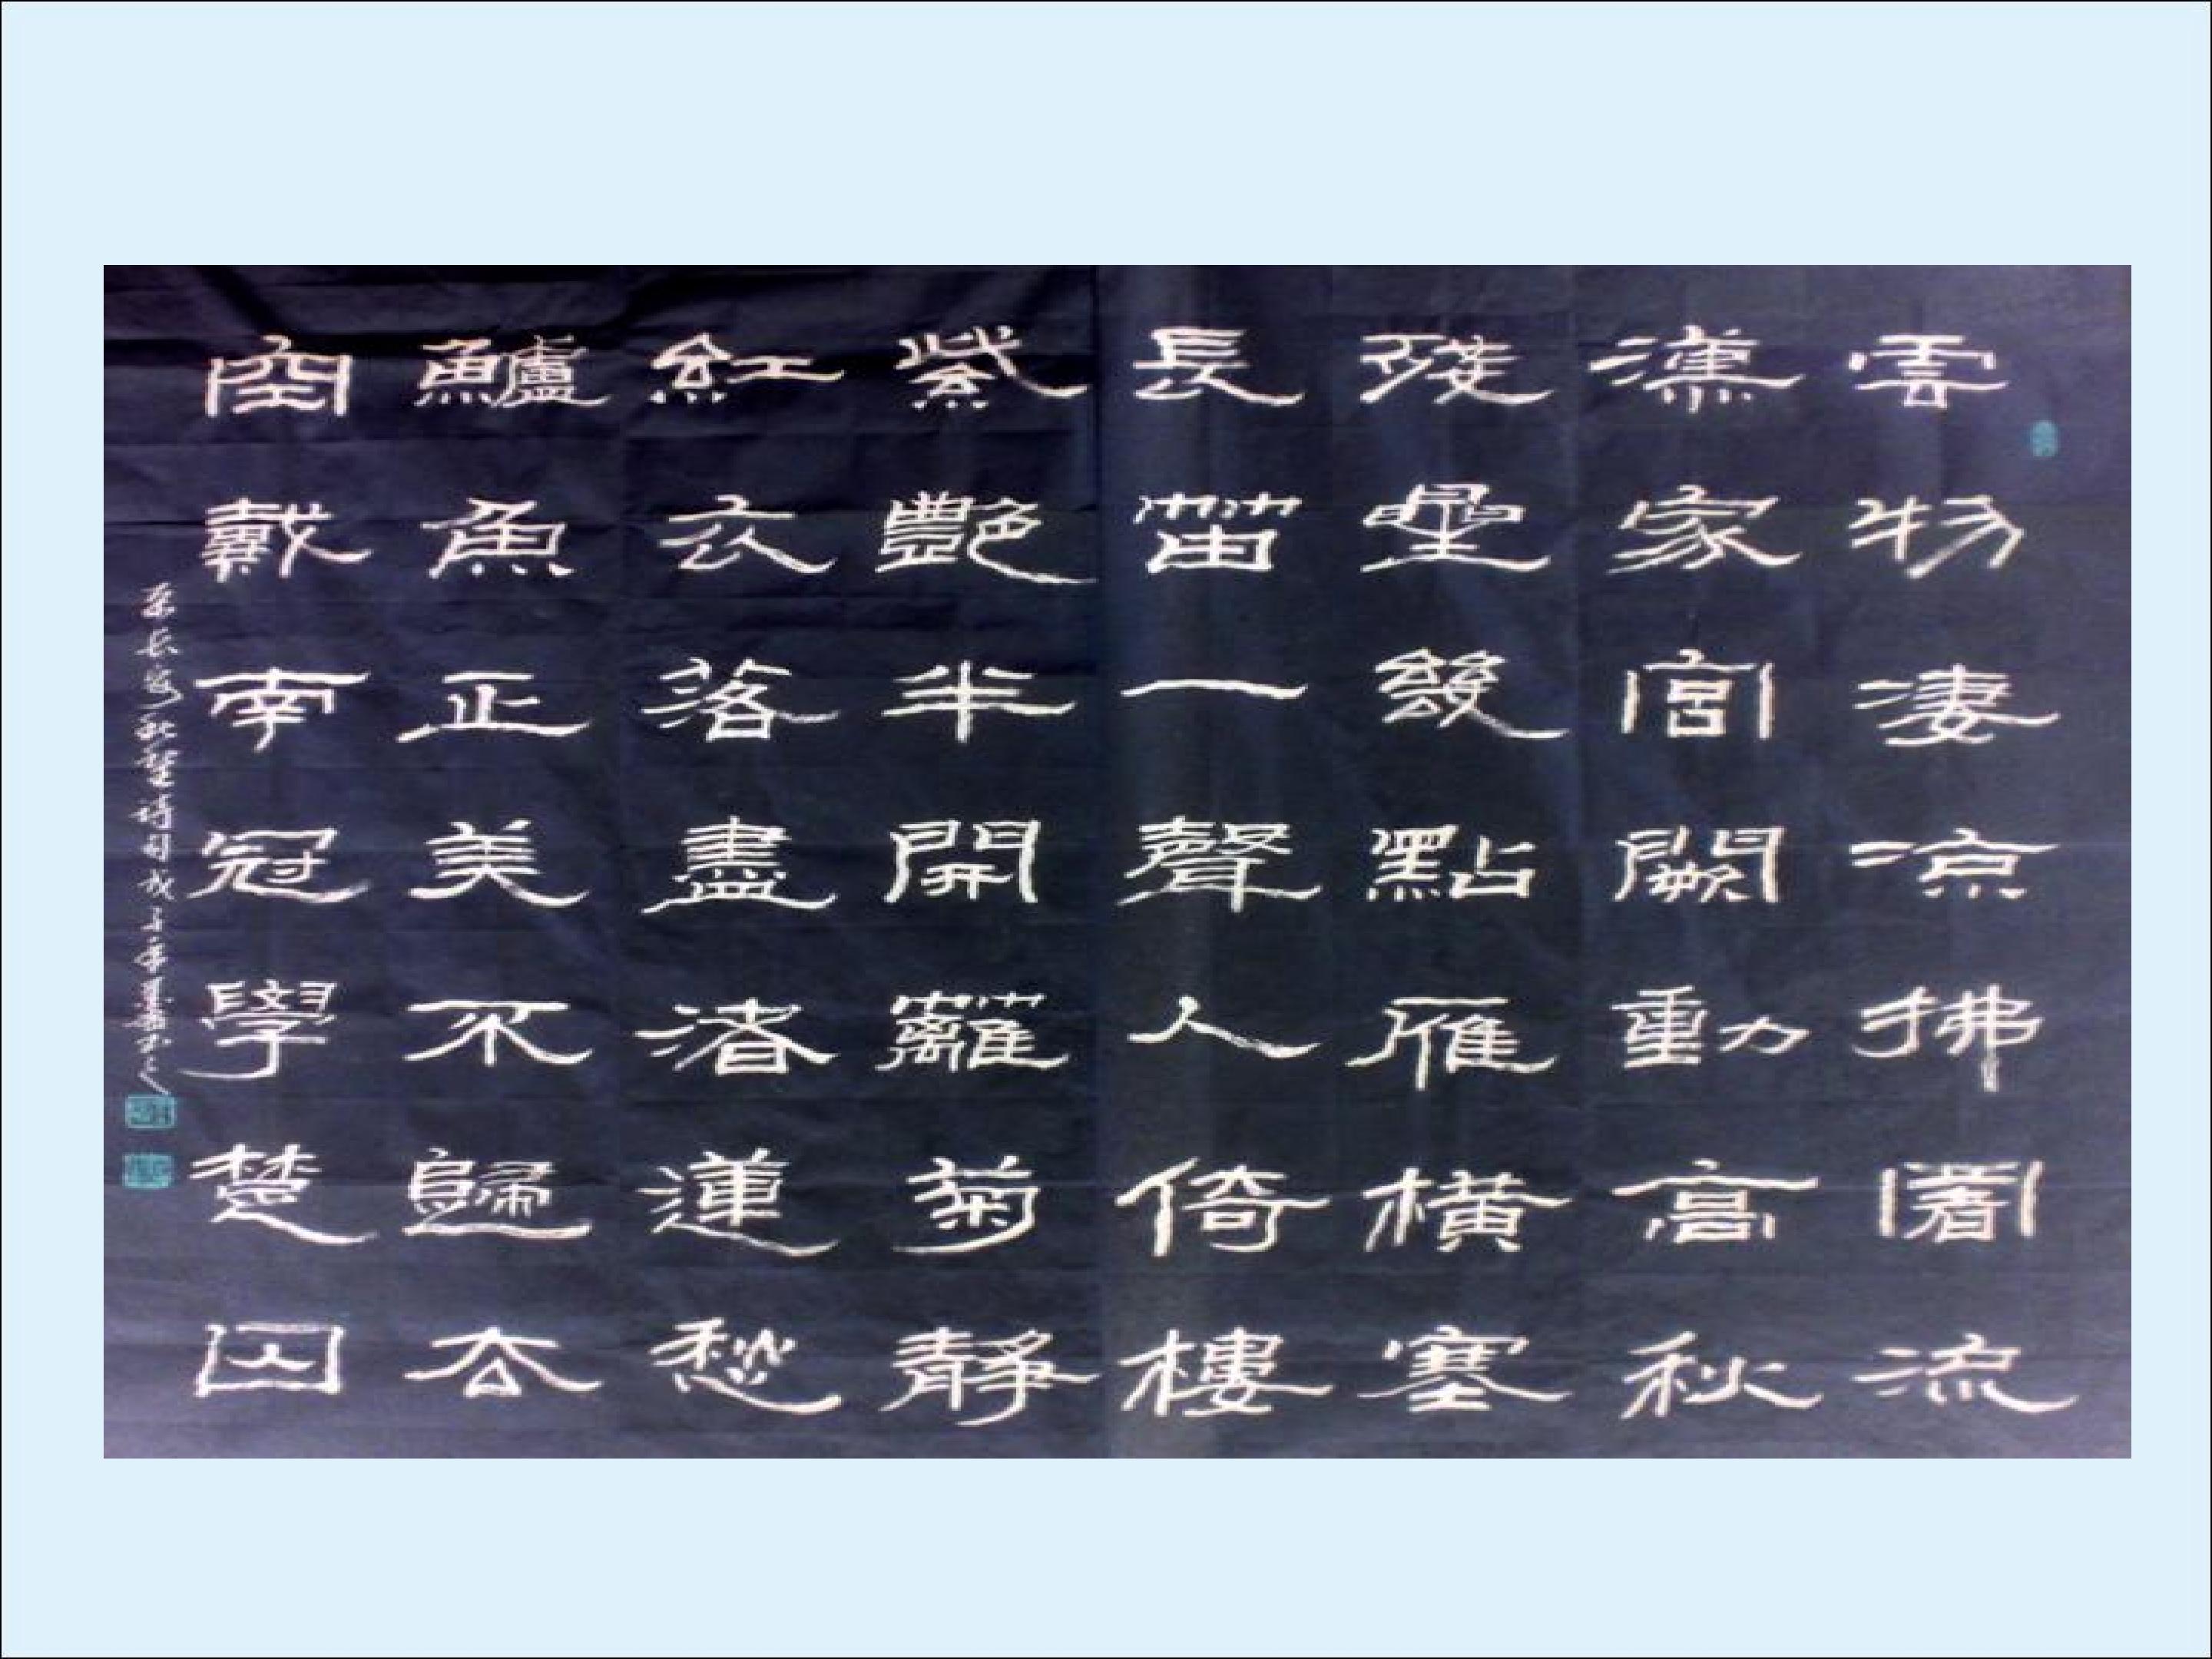 雲物淒凉拂曙流
漢家宮闕動高秋
殘星幾點雁橫塞
長笛一聲人倚樓
紫艷半開籬菊靜
紅衣落盡渚蓮愁
鱸魚正美不歸去
空戴南冠學楚囚
長安秋望詩句戊子年